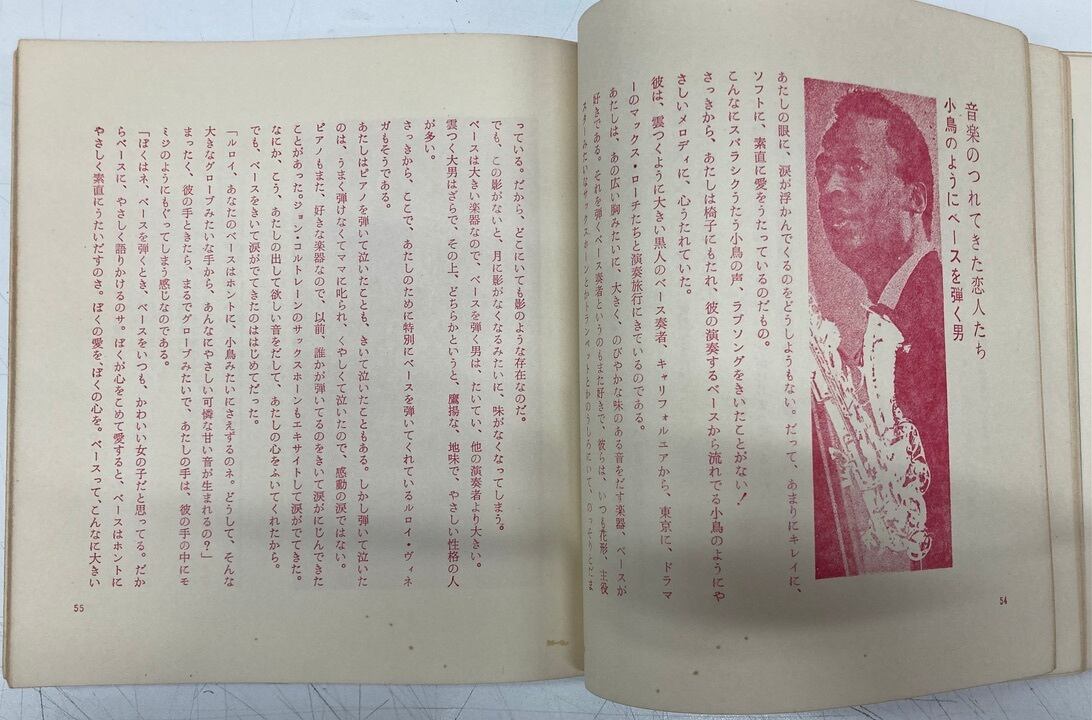 音楽のつれてきた恋人たち
小鳥のようにベースを弾く男
あたしの眼に、涙が浮かんでくるのをどうしようもない。だって、あまりにキレイに、
ソフトに、素直に愛をうたっているのだもの。
こんなにスバラシクうたう小鳥の声、ラブソングをきいたことがない！
さっきから、あたしは椅子にもたれ、彼の演奏するベースから流れでる小鳥のようにや
さしいメロディに、心うたれていた。
彼は、雲つくように大きい黒人のベース奏者、キャリフォルニアから、東京に、ドラマ
ーのマックス・ローチたちと演奏旅行にきているのである。
あたしは、あの広い胸みたいに、大きく、のびやかな味のある音をだす楽器、ベースが
好きである。それを弾くベース奏者というのもまた好きで、彼らは、いつも花形、主役
スターみたいなサックスホーンとかトランペットとかのうしろにいて、のっそりとだま
54
っている。だから、どこにいても影のような存在なのだ。
でも、この影がないと、月に影がなくなるみたいに、味がなくなってしまう。
ベースは大きい楽器なので、ベースを弾く男は、たいてい、他の演奏者より大きい。
雲つく大男はざらで、その上、どちらかというと、鷹揚な、地味で、やさしい性格の人
が多い。
さっきから、ここで、あたしのために特別にベースを弾いてくれているルロイ・ヴィネ
ガもそうである。
あたしはピアノを弾いて泣いたことも、きいて泣いたこともある。しかし弾いて泣いた
のは、うまく弾けなくてママに叱られ、くやしくて泣いたので、感動の涙ではない。
ピアノもまた、好きな楽器なので、以前、誰かが弾いてるのをきいて涙がにじんできた
ことがあった。ジョン・コルトレーンのサックスホーンもエキサイトして涙がでてきた。
なにか、こう、あたしの出して欲しい音をだして、あたしの心をふいてくれたから。
でも、ベースをきいて涙がでてきたのははじめてだった。
「ルロイ、あなたのベースはホントに、小鳥みたいにさえずるのネ。どうして、そんな
大きなグローブみたいな手から、あんなにやさしい可憐な甘い音が生まれるの？」
まったく、彼の手ときたら、まるでグローブみたいで、あたしの手は、彼の手の中にモ
ミジのようにもぐってしまう感じなのである。
「ぼくはネ、ベースを弾くとき、ベースをいつも、かわいい女の子だと思ってる。だか
らベースに、やさしく語りかけるのサ。ぼくが心をこめて愛すると、ベースはホントに
やさしく素直にうたいだすのさ。ぼくの愛を、ぼくの心を。ベースって、こんなに大きい
55